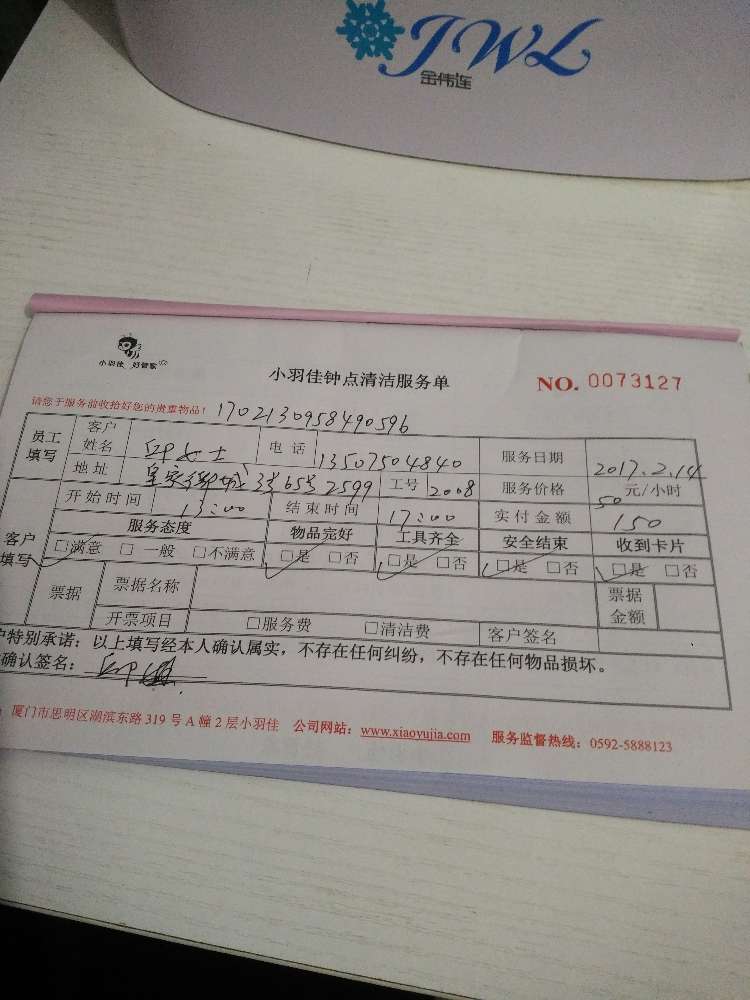 JWL
金伟连
小羽佳 好管家
小羽佳钟点清洁服务单
NO. 0073127
请您于服务前收拾好您的贵重物品！ 1702130958490596
员工填写 客户姓名 女士 电话 13507504840 服务日期 2017.2.14
地址 皇家御城 2599 工号 2008 服务价格 50 元/小时
客户填写 开始时间 13:00 结束时间 17:00 实付金额 150
服务态度 物品完好 工具齐全 安全结束 收到卡片
□满意 □一般 □不满意 □是 □否 □是 □否 □是 □否 □是 □否
票据 票据名称 票据金额
开票项目 □服务费 □清洁费 客户签名
户特别承诺：以上填写经本人确认属实，不存在任何纠纷，不存在任何物品损坏。
确认签名：
厦门市思明区湖滨东路 319 号 A 幢 2 层小羽佳 公司网站：www.xiaoyujia.com 服务监督热线：0592-5888123